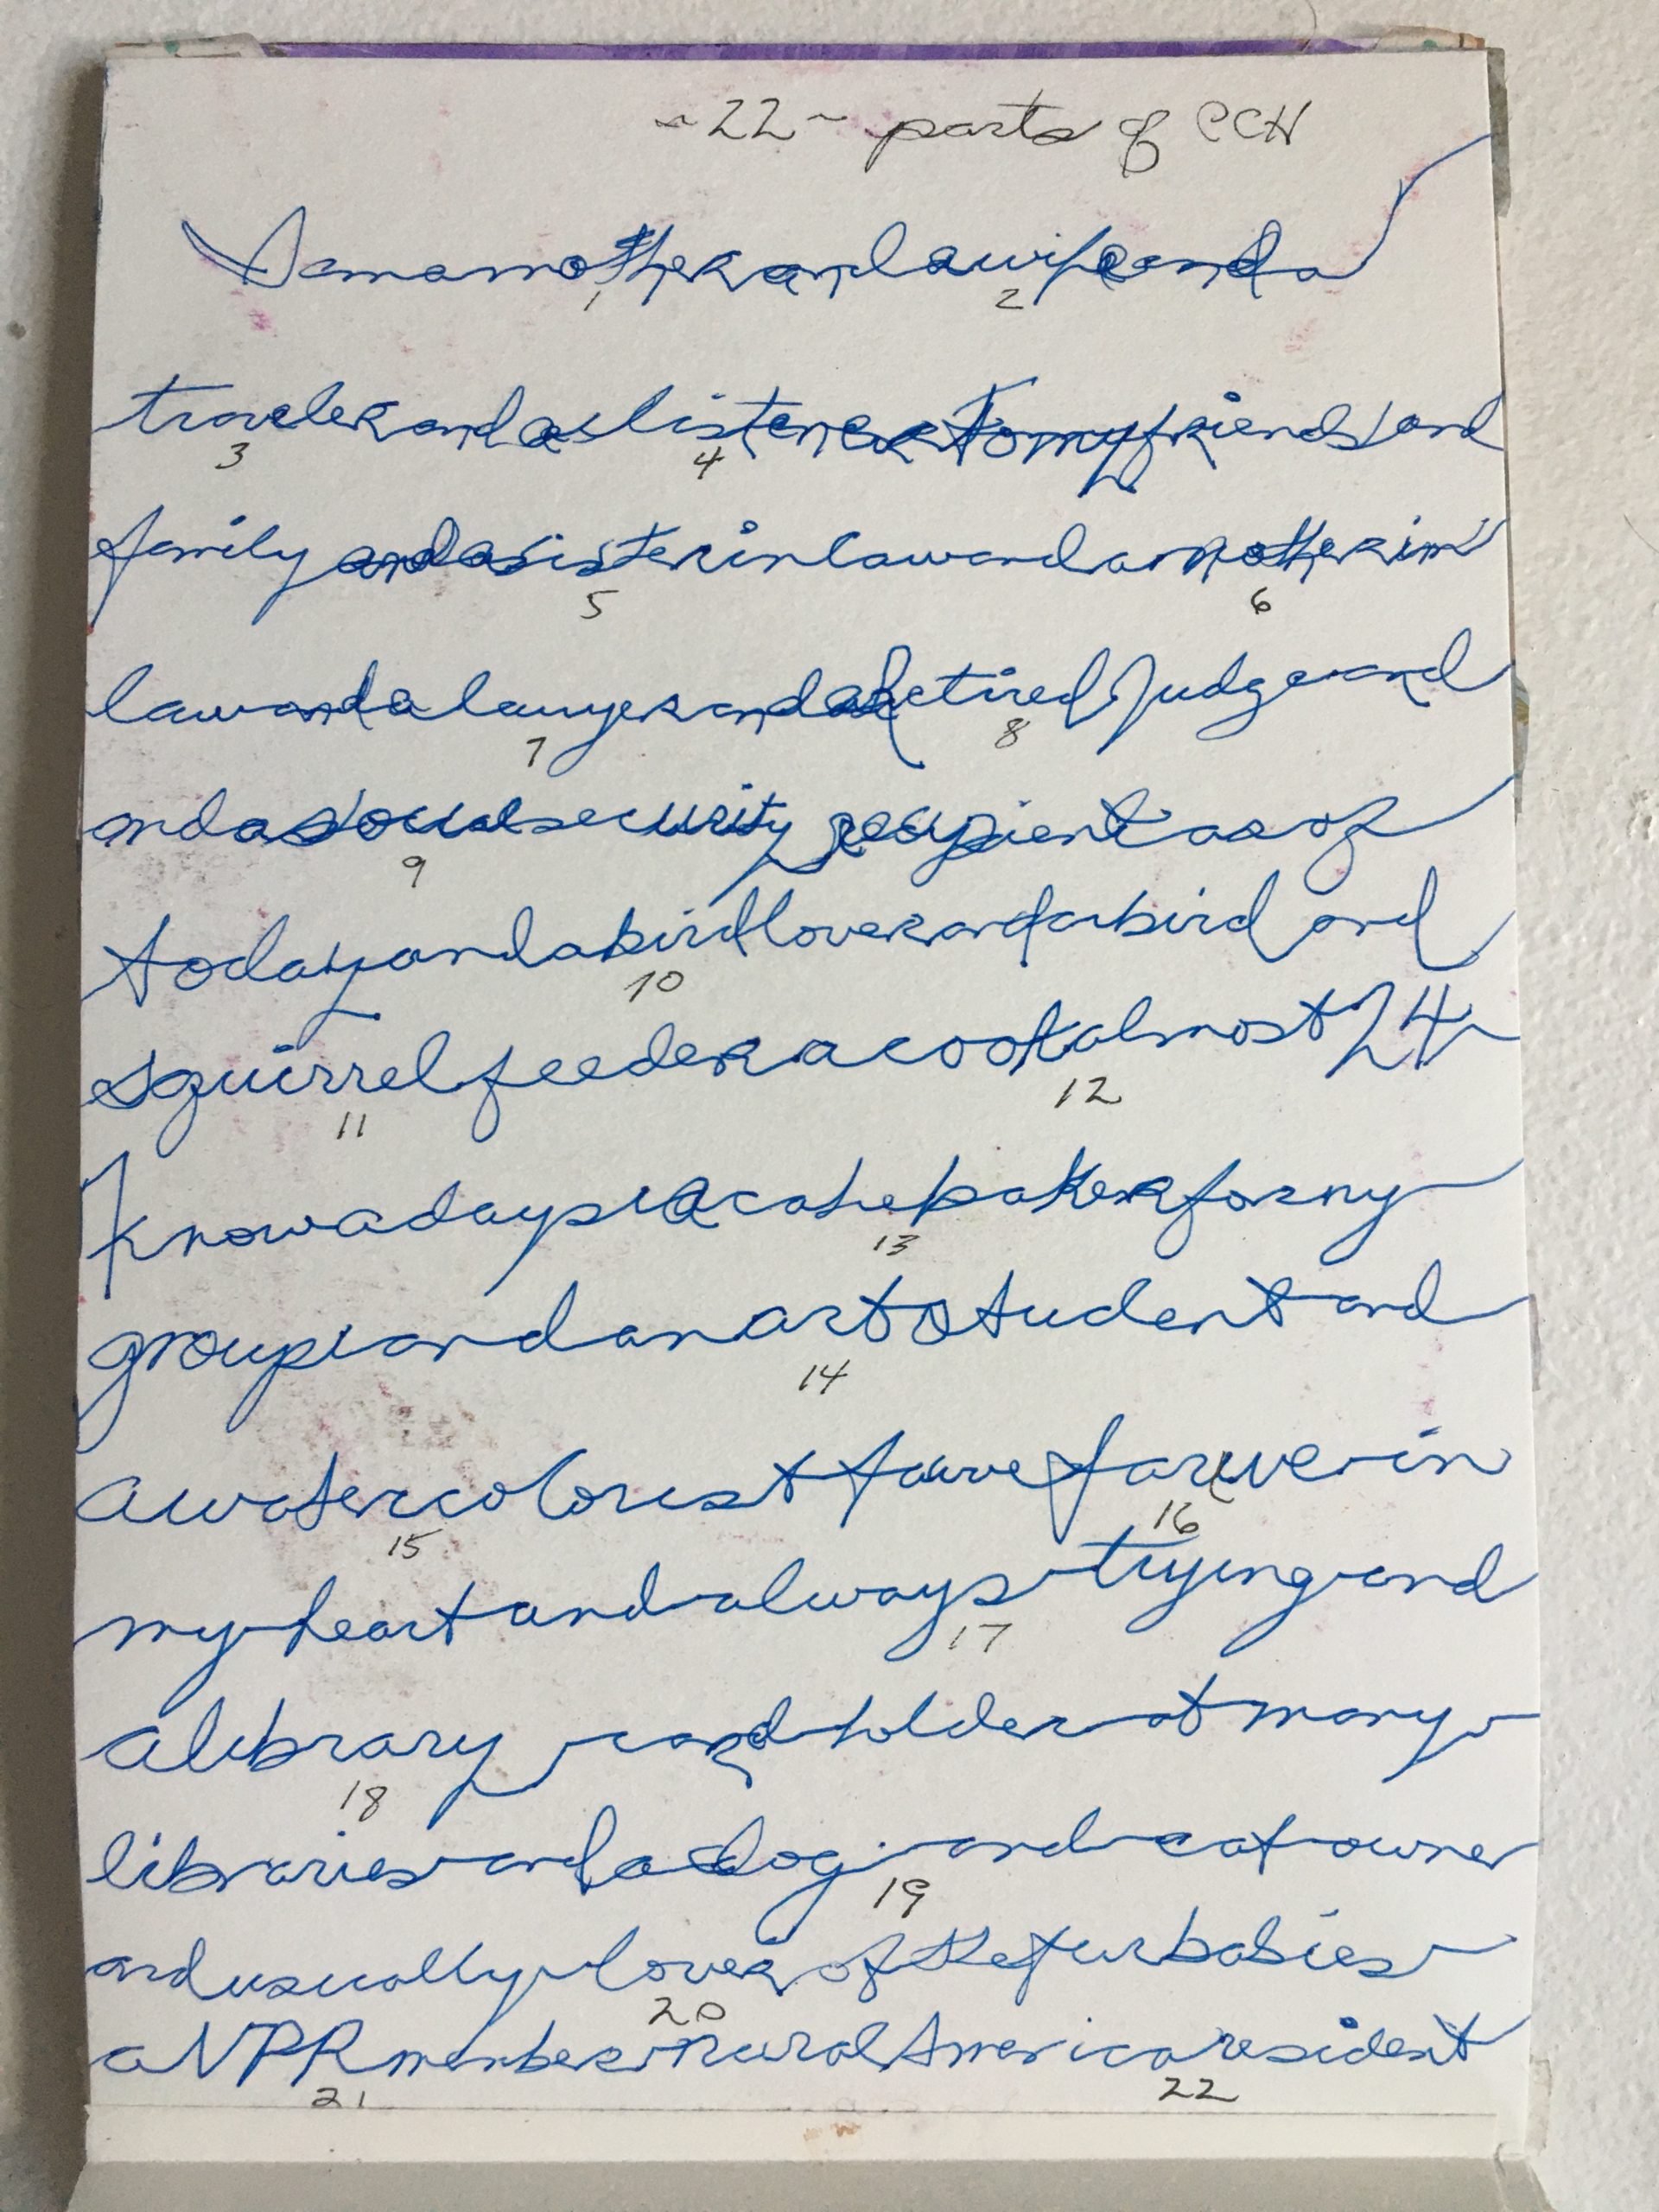 ~22~ parts of CCH
Iamamotherandawifeanda
1 2
travelerandalistenertomyfriendsand
3 4
family andasisterinlawandamotherin
5 6
lawandalawyerandaRetiredJudgeand
7 8
andasocialsecurity recipientasof
9
todayandabirdloverandabird and
10
squirrelfeederacookalmost 24
11 12
7nowadays acakebakerformy
13
groupandanartstudentand
14
awatercolorist farmerin
15 16
myheartandalwaystryingand
17
alibrary cardholderatmany
18
librariesandadog andcatowner
19
andusuallyloverofthefurbabies
20
aNPRmemberinruralAmericaresident
21 22